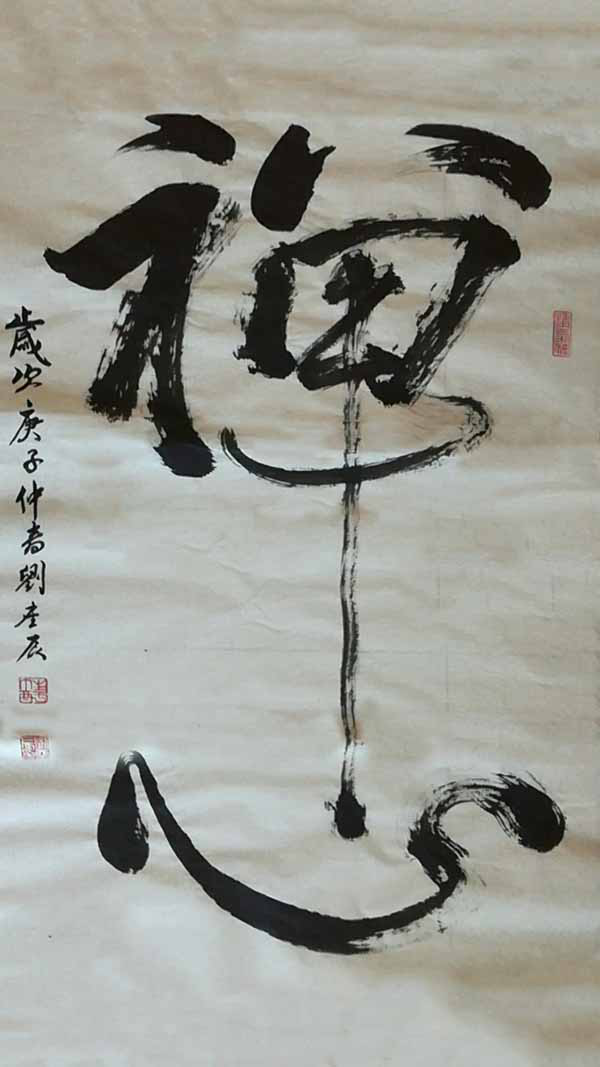 禅心
歲次庚子仲春劉奎辰